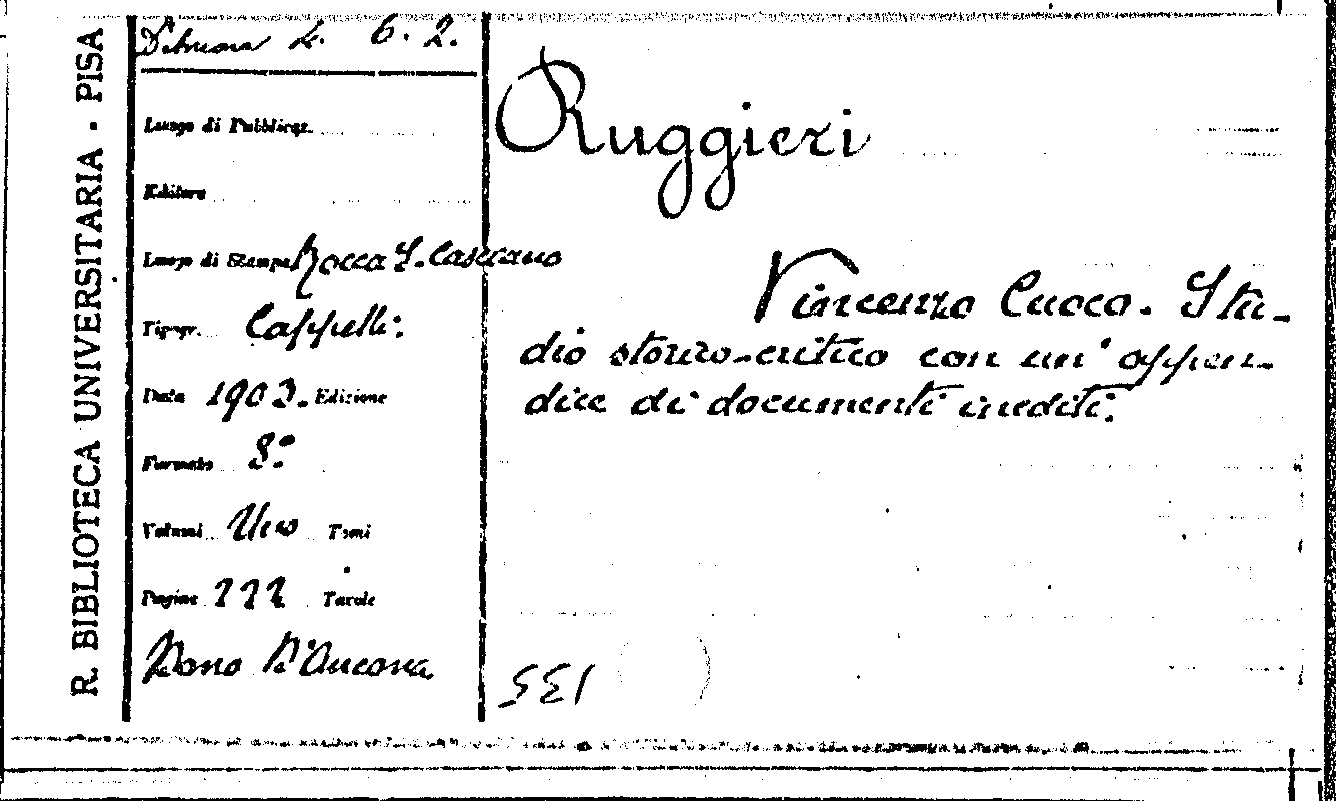 R. BIBLIOTECA UNIVERSITARIA - PISA
D'Ancona 4. 6. 2.
Luogo di Pubblicaz.
Editore
Luogo di Stampa Rocca S. Casciano
Tipogr. Cappelli.
Data 1903. Edizione
Formato 8.°
Volumi Uno Tomi
Pagine Tavole
Dono D'Ancona
Ruggieri
Vincenzo Cuoco. Stu-
dio storico-critico con un' appen-
dice di documenti inediti.